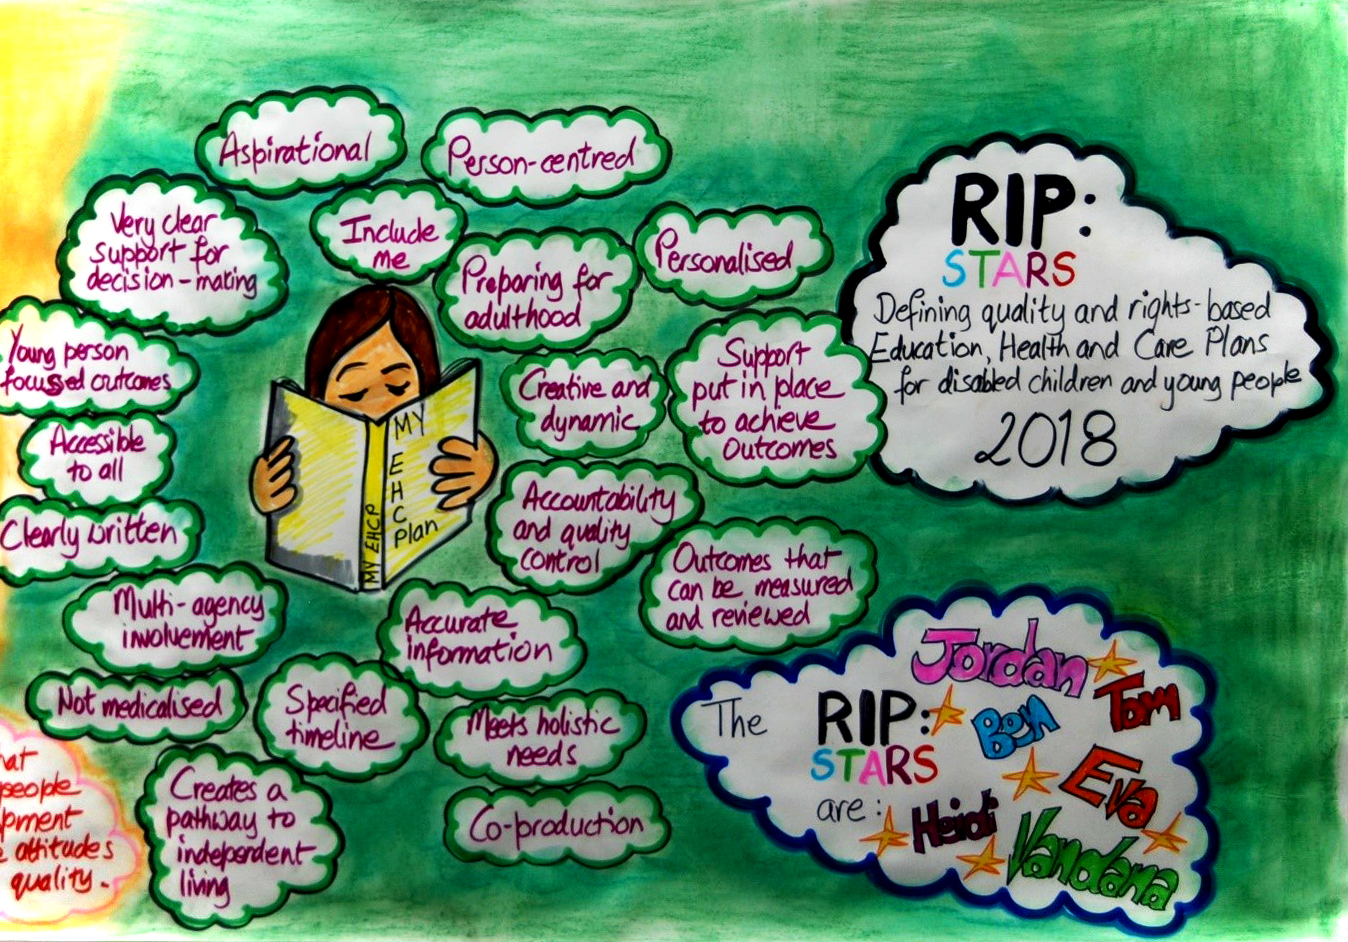 Aspirational
Person-centred
Very clear
support for
decision-making
Include
me
Preparing for
adulthood
Personalised
Young person
focussed outcomes
Creative and
dynamic
Support
put in place
to achieve
Outcomes
Accessible
to all
Clearly written
Accountability
and quality
control
Outcomes that
can be measured
and reviewed
Multi-agency
involvement
Accurate
information
Not medicalised
Specified
timeline
Meets holistic
needs
Creates a
pathway to
independent
living
Co-production
MY
E
H
C
Plan
MY EHCP
people
attitudes
quality.
RIP:
STARS
Defining quality and rights-based
Education, Health and Care Plans
for disabled children and young people
2018
The RIP:
STARS
are:
Jordan
Tom
Ben
Eva
Heidi
Vandana